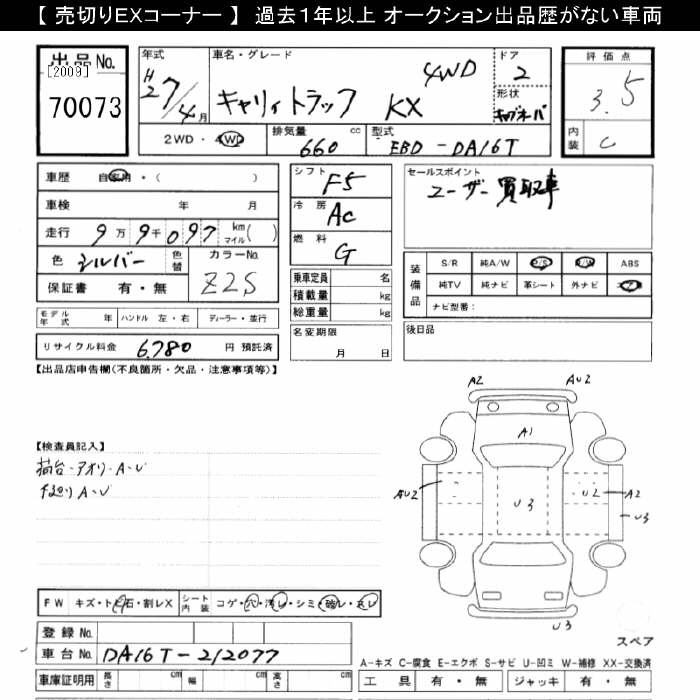 【 売切りEXコーナー 】 過去1年以上 オークション出品歴がない車両
出品 No.
[2009]
70073
年式 車名・グレード ドア
H27/4月 キャリイトラック KX 4WD 2
形状
キャブオーバ
2WD ・ 4WD 排気量 660 cc 型式 EBD-DA16T
評価点
3.5
内装 C
車歴 自家用 ・ ( )
車検 年 月
走行 9万9千097 km マイル( )
色 シルバー 色替 カラーNo.
Z2S
保証書 有 ・ 無
モデル年式 年 ハンドル 左・右 ディーラー・並行
リサイクル料金 6,780 円 預託済
シフト F5
冷房 AC
燃料 G
乗車定員 名
積載量 kg
総重量 kg
名変期限
月 日
セールスポイント
ユーザー買取車
装備品 S/R 純A/W P/S P/W ABS
純TV 純ナビ 革シート 外ナビ エア
ナビ型番：
後日品
【出品店申告欄(不良箇所・欠品・注意事項等)】
【検査員記入】
荷台・アオリ・A・U
下廻り A・U
A2 AU2
A1
AU2 U3 U2 A2
U3
U3
FW キズ・トビ石・割レX シート内装 コゲ・穴・汚レ・シミ・破レ・スレ
登録 No.
車台 No. DA16T-212077
車庫証明用 長さ cm 幅 cm 高さ cm
スペア
A-キズ C-腐食 E-エクボ S-サビ U-凹ミ W-補修 XX-交換済
工具 有 ・ 無 ジャッキ 有 ・ 無